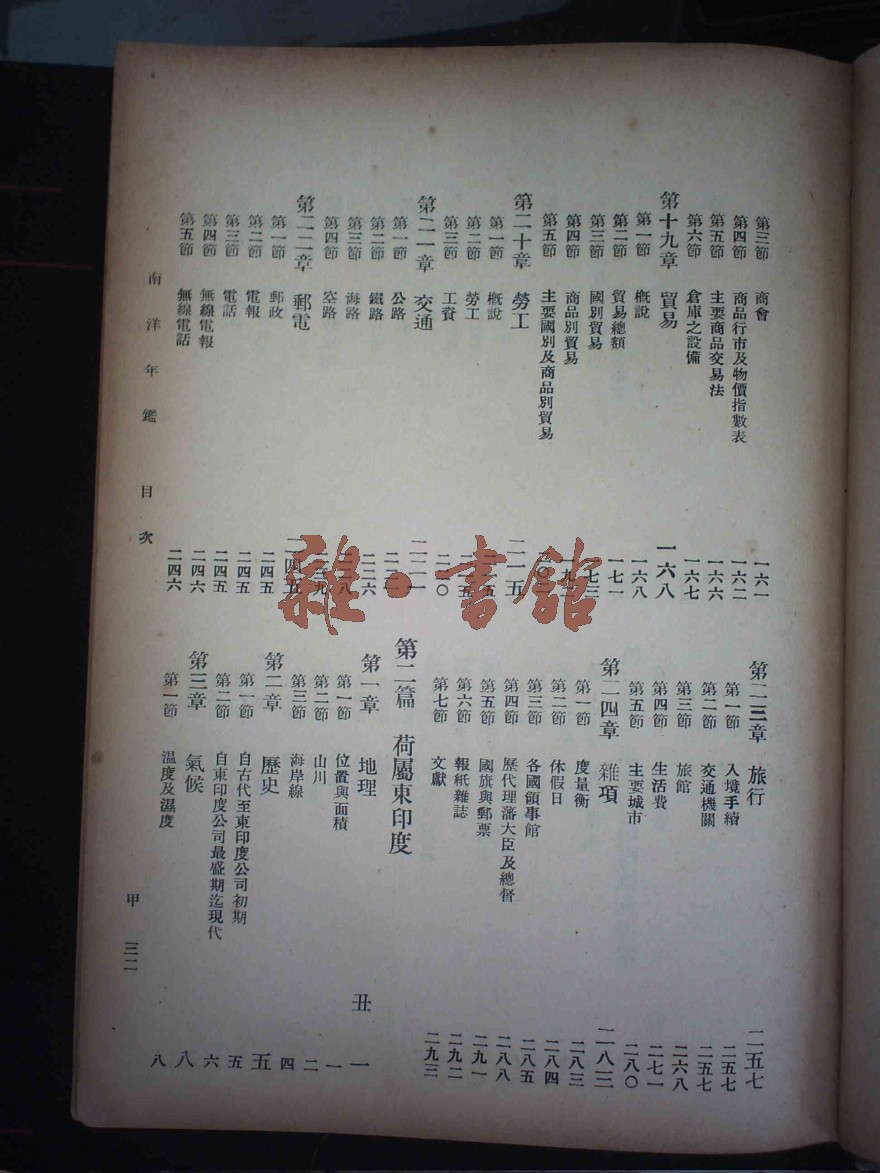 第三節 商會 一六一
第四節 商品行市及物價指數表 一六二
第五節 主要商品交易法 一六六
第六節 倉庫之設備 一六七
第十九章 貿易 一六八
第一節 概說 一六八
第二節 貿易總額 一七一
第三節 國別貿易
第四節 商品別貿易
第五節 主要國別及商品別貿易
第二十章 勞工 二一五
第一節 概說
第二節 勞工
第三節 工資 二二〇
第二一章 交通 二二一
第一節 公路
第二節 鐵路 二二六
第三節 海路
第四節 空路
第二二章 郵電 二四五
第一節 郵政 二四五
第二節 電報 二四五
第三節 電話 二四五
第四節 無線電報 二四六
第五節 無線電話 二四六
第二三章 旅行 二五七
第一節 入境手續 二五七
第二節 交通機關 二五七
第三節 旅館 二六八
第四節 生活費 二七一
第五節 主要城市 二八〇
第二四章 雜項 二八三
第一節 度量衡 二八三
第二節 休假日 二八四
第三節 各國領事館 二八五
第四節 歷代理藩大臣及總督 二八八
第五節 國旗與郵票 二九一
第六節 報紙雜誌 二九二
第七節 文獻 二九三
第二篇 荷屬東印度
第一章 地理 丑 一
第一節 位置與面積 一
第二節 山川 二
第三節 海岸線 四
第二章 歷史 五
第一節 自古代至東印度公司初期 五
第二節 自東印度公司最盛期迄現代 六
第三章 氣候 八
第一節 溫度及濕度 八
南洋年鑑 目次 甲 三二
雜·書館